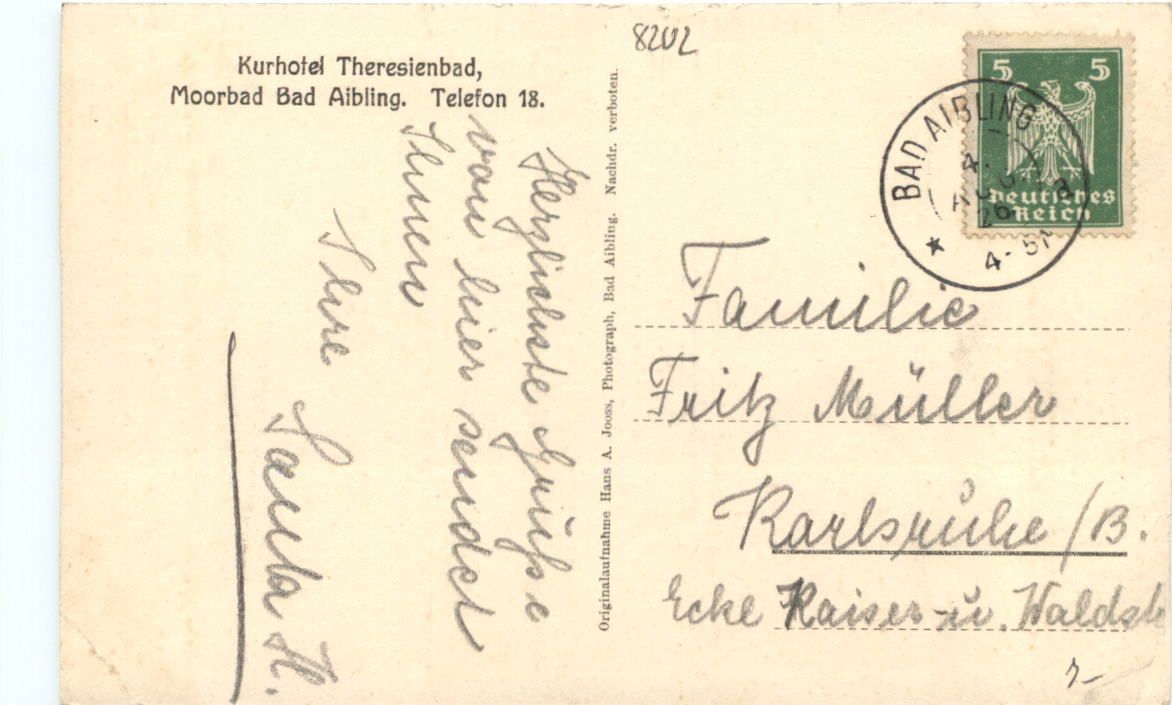 Kurhotel Theresienbad,
Moorbad Bad Aibling. Telefon 18.
8202
Herzlichste Grüße
von hier sendet
Ihnen
Ihre
H.
Originalaufnahme Hans A. Jooss, Photograph, Bad Aibling. Nachdr. verboten.
5 5
Deutsches
Reich
BAD AIBLING
4.
AUG
26
4-5N
Familie
Fritz Müller
Karlsruhe/B.
Ecke Kaiser- u. Waldstr